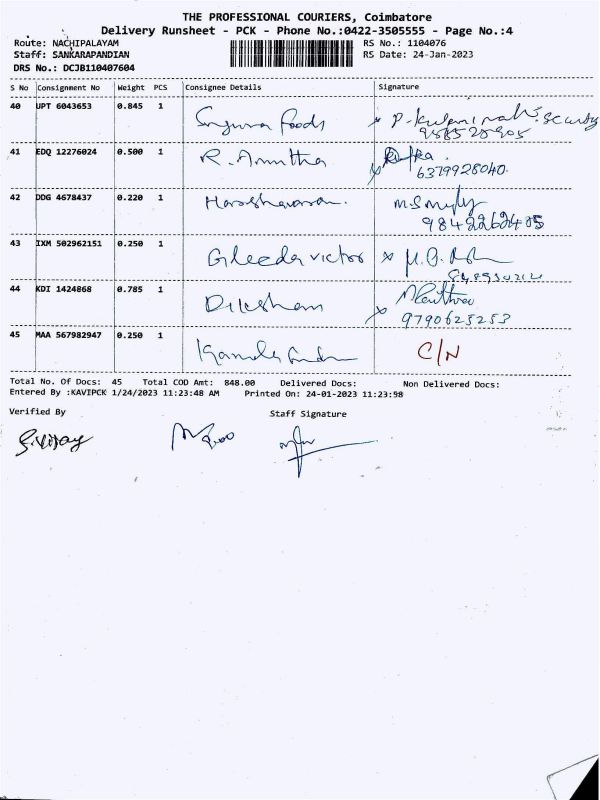 THE PROFESSIONAL COURIERS, Coimbatore
Delivery Runsheet - PCK - Phone No.:0422-3505555 - Page No.:4
Route: NACHIPALAYAM RS No.: 1104076
Staff: SANKARAPANDIAN RS Date: 24-Jan-2023
DRS No.: DCJB110407604
S No Consignment No Weight PCS Consignee Details Signature
40 UPT 6043653 0.845 1 Foods Security
41 EDQ 12276024 0.500 1 R. Amutha
6379928040
42 DDG 4678437 0.220 1
9842262405
43 IXM 502962151 0.250 1 Gleeda victor
44 KDI 1424868 0.785 1
9790625253
45 MAA 567982947 0.250 1 C/N
Total No. Of Docs: 45 Total COD Amt: 848.00 Delivered Docs: Non Delivered Docs:
Entered By :KAVIPCK 1/24/2023 11:23:48 AM Printed On: 24-01-2023 11:23:58
Verified By Staff Signature